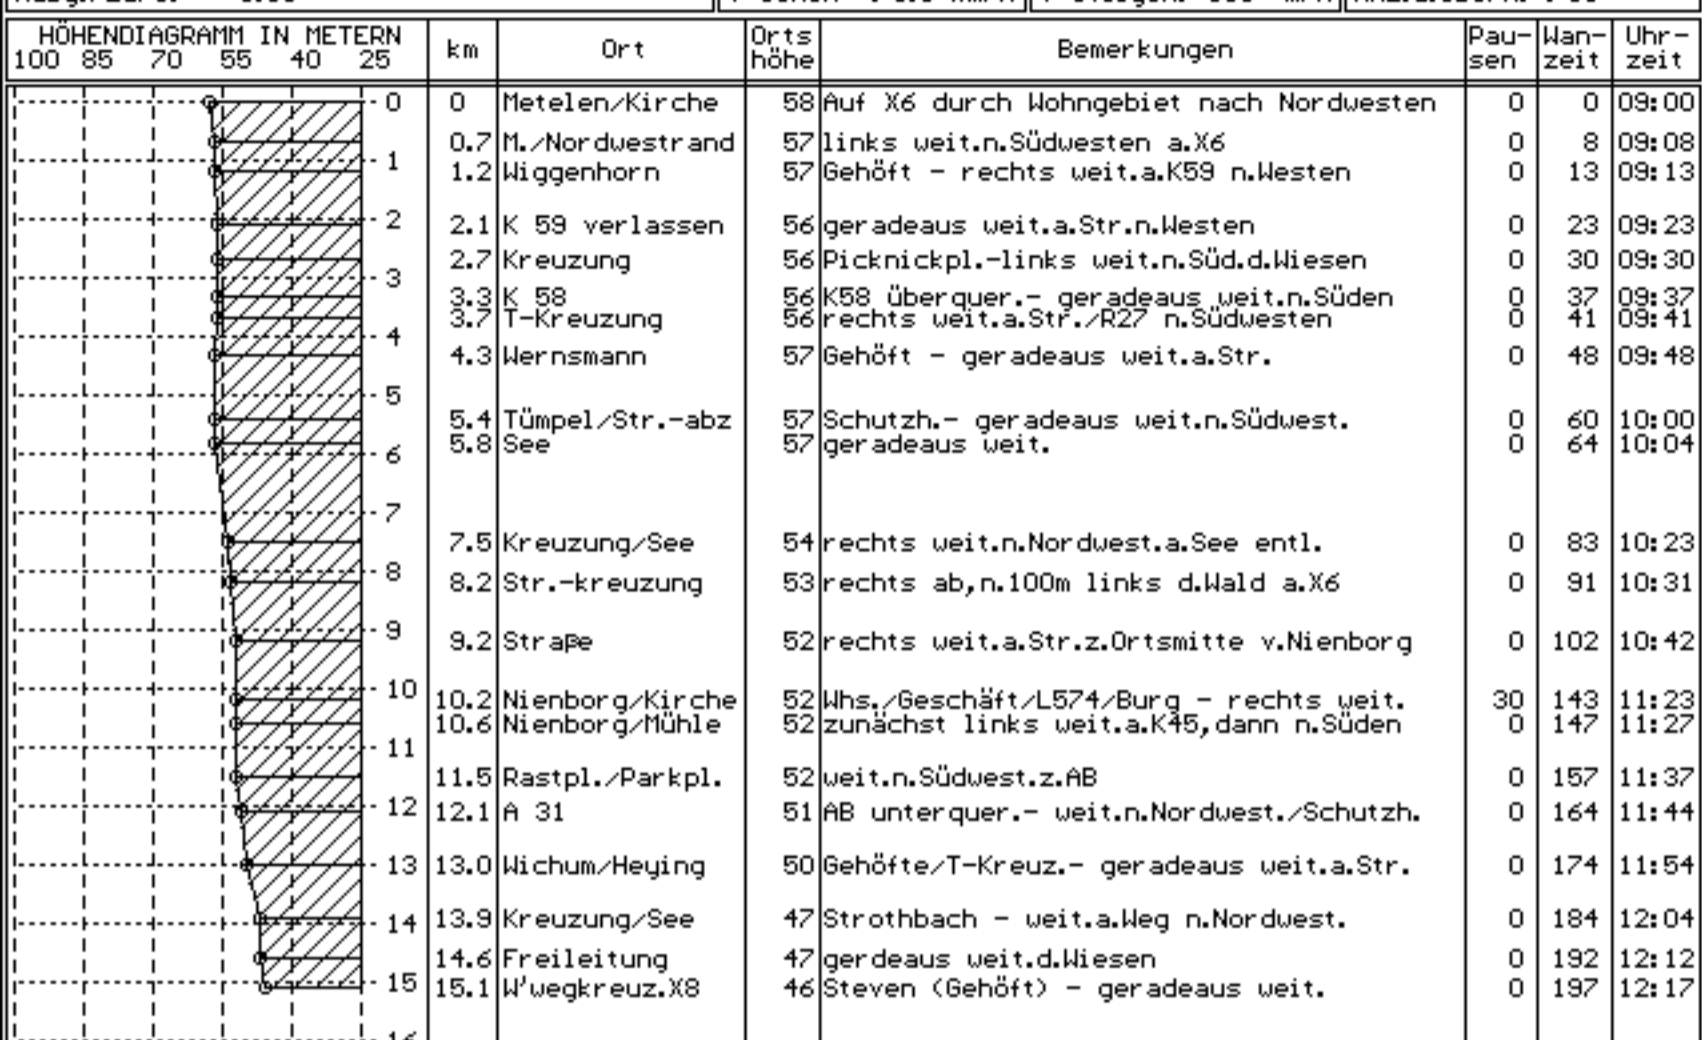 HÖHENDIAGRAMM IN METERN km Ort Orts höhe Bemerkungen Pau- sen Wan- zeit Uhr- zeit
100 85 70 55 40 25
0 0 Metelen/Kirche 58 Auf X6 durch Wohngebiet nach Nordwesten 0 0 09:00
0.7 M./Nordwestrand 57 links weit.n.Südwesten a.X6 0 8 09:08
1
1.2 Wiggenhorn 57 Gehöft - rechts weit.a.K59 n.Westen 0 13 09:13
2
2.1 K 59 verlassen 56 geradeaus weit.a.Str.n.Westen 0 23 09:23
2.7 Kreuzung 56 Picknickpl.-links weit.n.Süd.d.Wiesen 0 30 09:30
3
3.3 K 58 56 K58 überquer.- geradeaus weit.n.Süden 0 37 09:37
3.7 T-Kreuzung 56 rechts weit.a.Str./R27 n.Südwesten 0 41 09:41
4
4.3 Wernsmann 57 Gehöft - geradeaus weit.a.Str. 0 48 09:48
5
5.4 Tümpel/Str.-abz 57 Schutzh.- geradeaus weit.n.Südwest. 0 60 10:00
5.8 See 57 geradeaus weit. 0 64 10:04
6
7
7.5 Kreuzung/See 54 rechts weit.n.Nordwest.a.See entl. 0 83 10:23
8
8.2 Str.-kreuzung 53 rechts ab,n.100m links d.Wald a.X6 0 91 10:31
9
9.2 Straße 52 rechts weit.a.Str.z.Ortsmitte v.Nienborg 0 102 10:42
10
10.2 Nienborg/Kirche 52 Whs./Geschäft/L574/Burg - rechts weit. 30 143 11:23
10.6 Nienborg/Mühle 52 zunächst links weit.a.K45,dann n.Süden 0 147 11:27
11
11.5 Rastpl./Parkpl. 52 weit.n.Südwest.z.AB 0 157 11:37
12
12.1 A 31 51 AB unterquer.- weit.n.Nordwest./Schutzh. 0 164 11:44
13 13.0 Wichum/Heying 50 Gehöfte/T-Kreuz.- geradeaus weit.a.Str. 0 174 11:54
14 13.9 Kreuzung/See 47 Strothbach - weit.a.Weg n.Nordwest. 0 184 12:04
14.6 Freileitung 47 gerdeaus weit.d.Wiesen 0 192 12:12
15 15.1 W'wegkreuz.X8 46 Steven (Gehöft) - geradeaus weit. 0 197 12:17